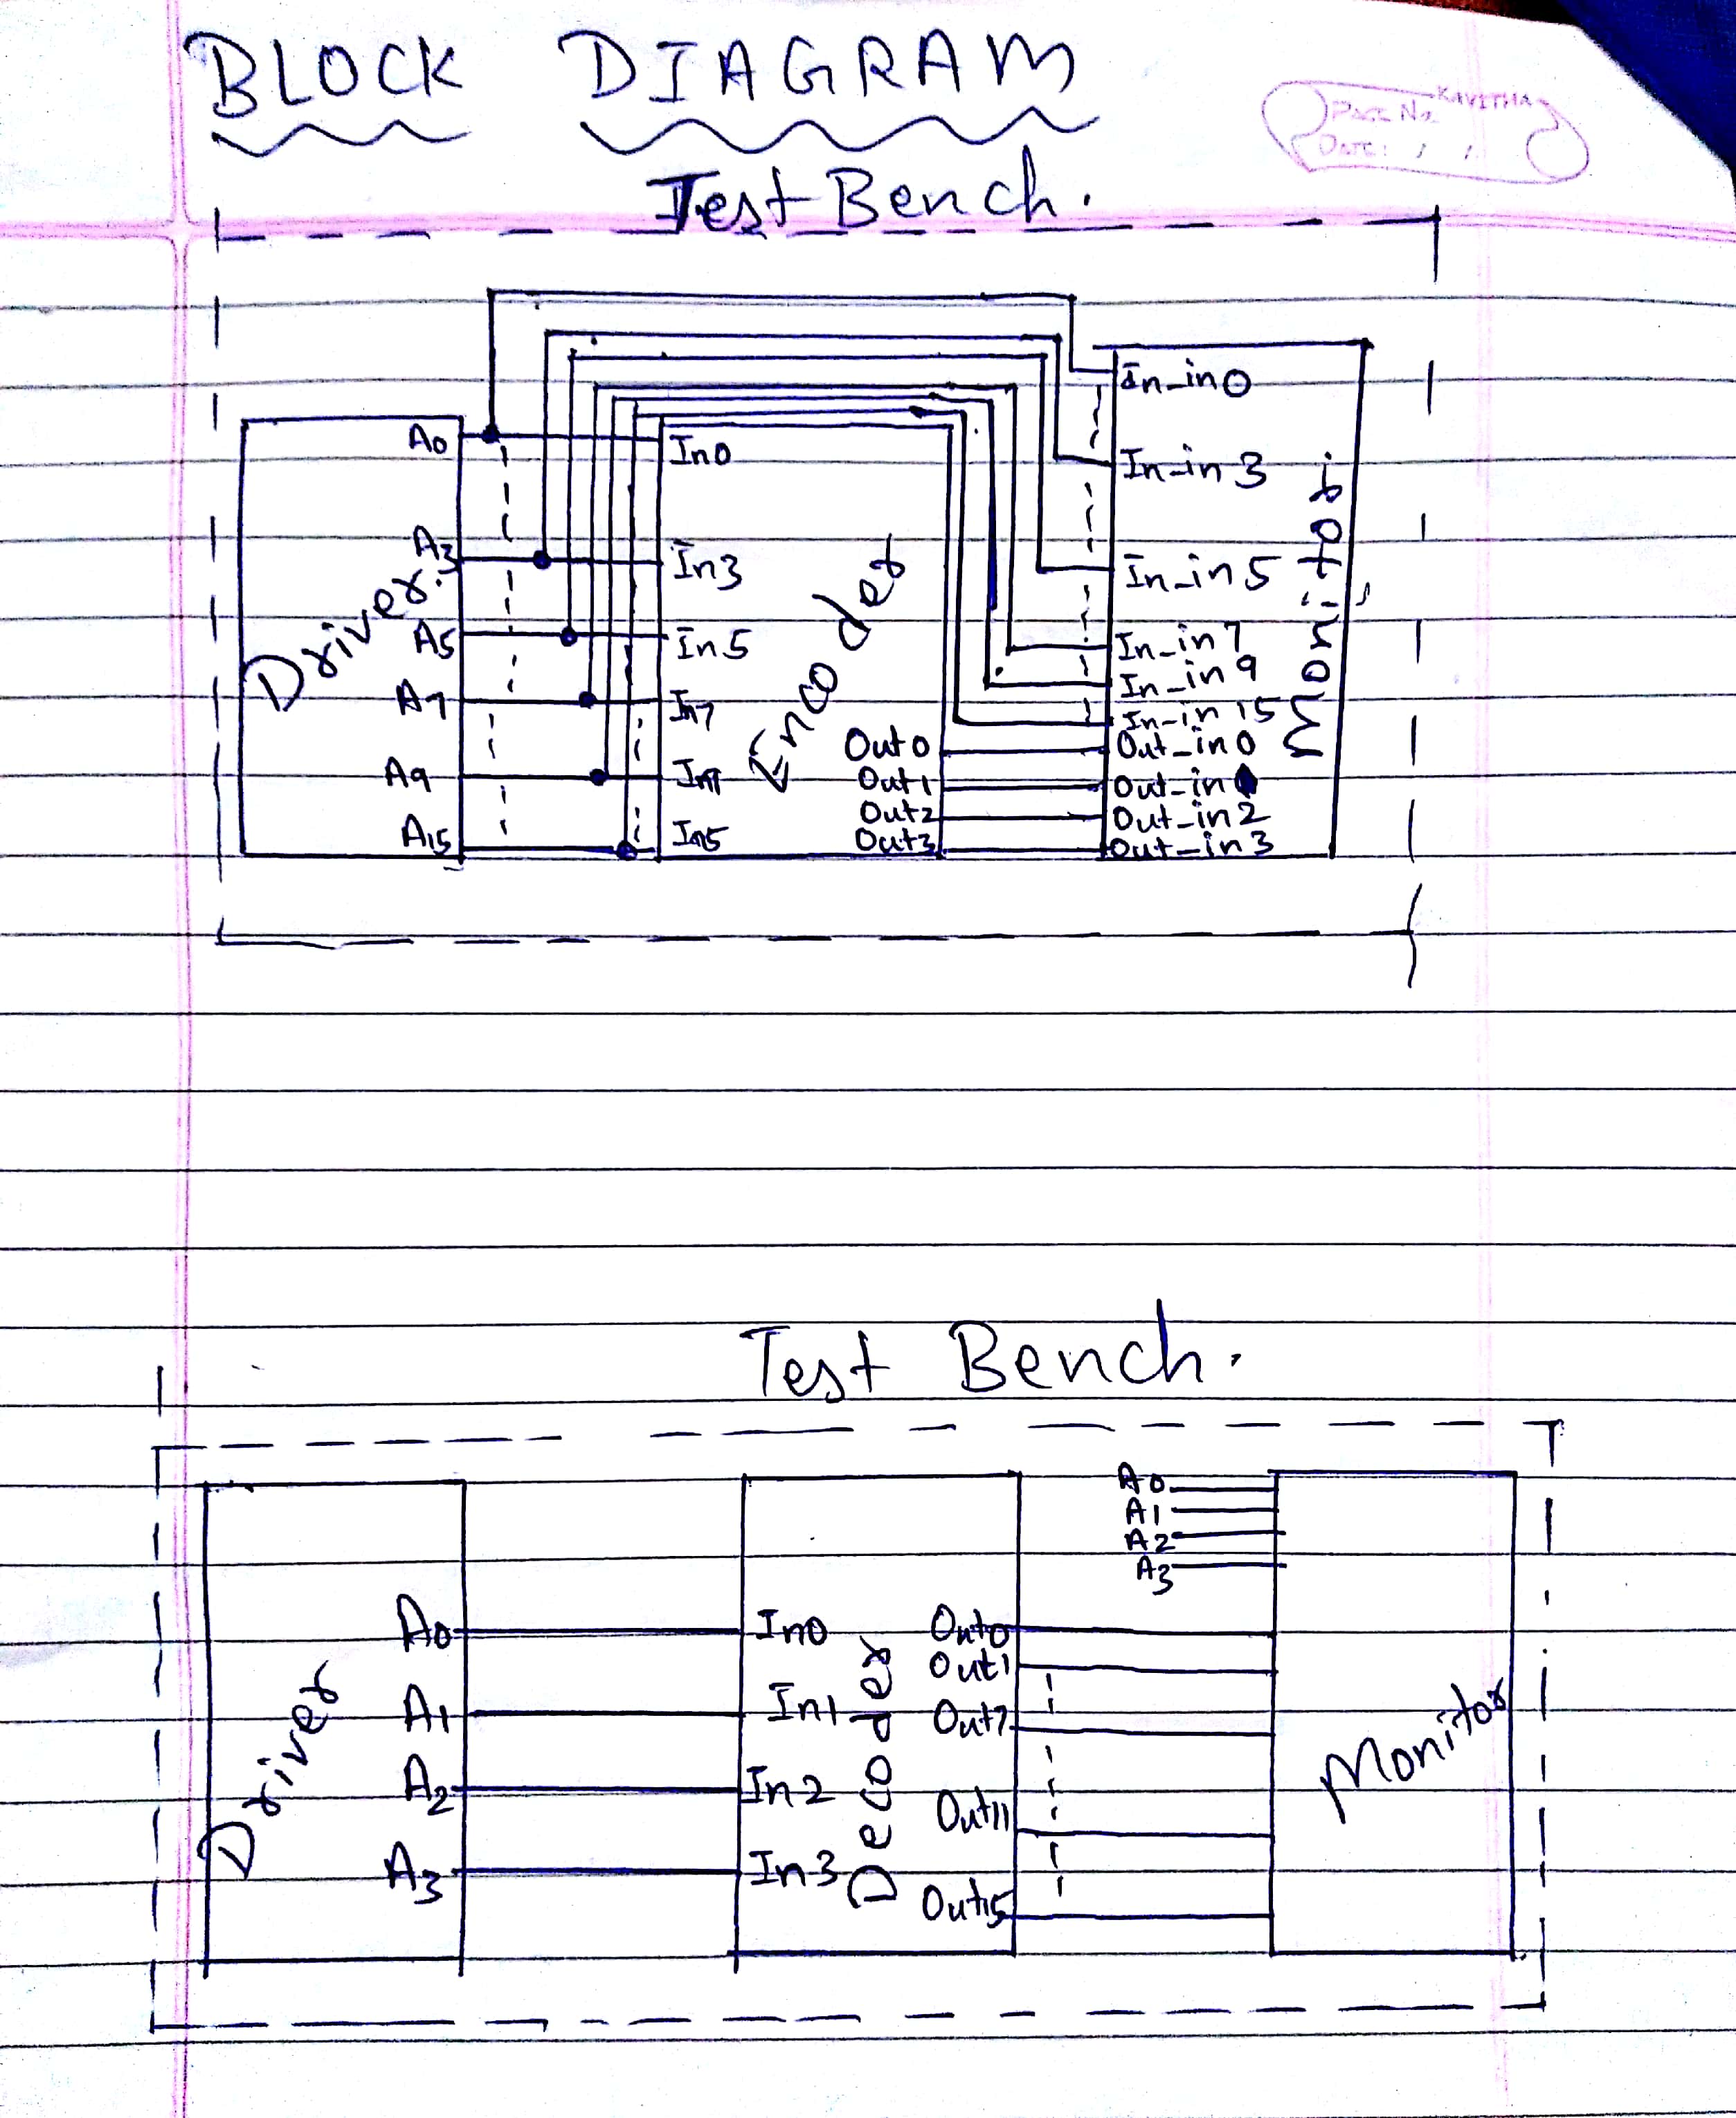 BLOCK DIAGRAM
KAVITHA
PAGE No.
DATE: / /
Test Bench.
Driver.
A0
A3
A5
A7
A9
A15
Encoder
In0
In3
In5
In7
In9
In15
Out0
Out1
Out2
Out3
Monitor
In_in0
In_in3
In_in5
In_in7
In_in9
In_in15
Out_in0
Out_in1
Out_in2
Out_in3
Test Bench.
Driver
A0
A1
A2
A3
Decoder
In0
In1
In2
In3
Out0
Out1
Out7
Out11
Out15
A0
A1
A2
A3
Monitor